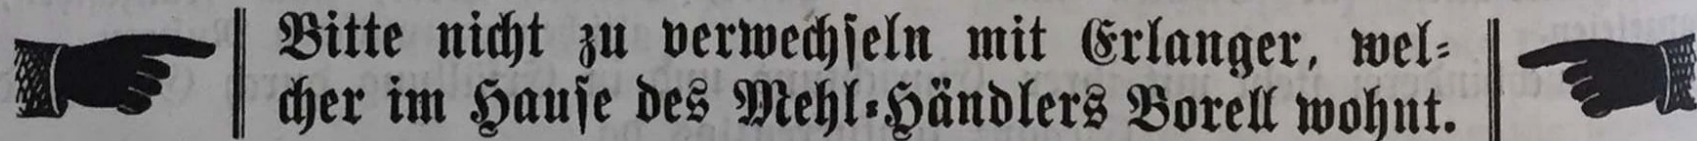 Bitte nicht zu verwechſeln mit Erlanger, wel⸗
cher im Hauſe des Mehl⸗Händlers Borell wohnt.